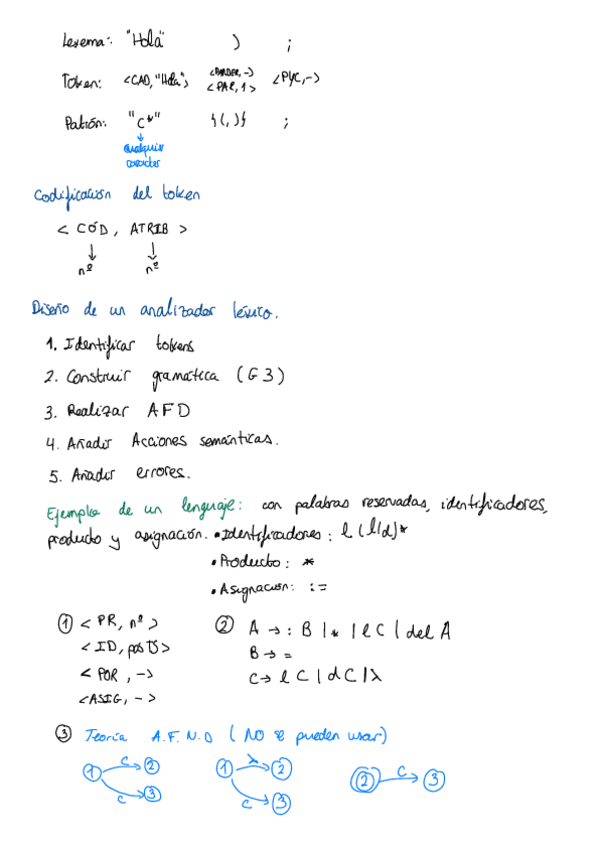 Lexema: "Hola" ) ;
Token: <CAD, "Hola"> <PARDER, -> <PYC, ->
<PAR, 1>
Patrón: "c*" {(,)} ;
cualquier
caracter
Codificación del token
< CÓD, ATRIB >
nº nº
Diseño de un analizador léxico.
1. Identificar tokens
2. Construir gramática (G3)
3. Realizar AFD
4. Añadir Acciones semánticas.
5. Añadir errores.
Ejemplo de un lenguaje: con palabras reservadas, identificadores,
producto y asignación. • Identificadores: l(l/d)*
• Producto: *
• Asignación: :=
① < PR, nº > ② A → : B | * | l C | del A
< ID, posTS > B → =
< POR, -> C → l C | d C | λ
<ASIG, - >
③ Teoría A.F.N.D (NO se pueden usar)
1 c 2 1 λ 2 2 c 3
c 3 c 3